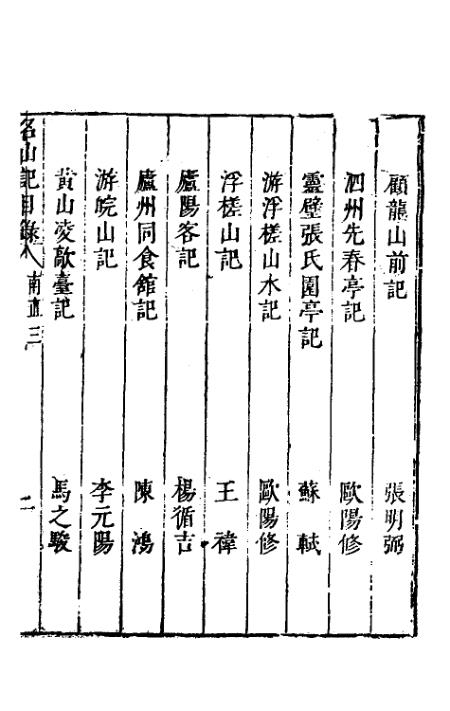 顧龍山前記　張明弼
泗州先春亭記　歐陽修
靈壁張氏園亭記　蘇軾
游浮槎山水記　歐陽修
浮槎山記　王褘
廬陽客記　楊循吉
廬州同食館記　陳鴻
游皖山記　李元陽
黃山凌歊臺記　馬之駿
名山記目錄　南直三　二